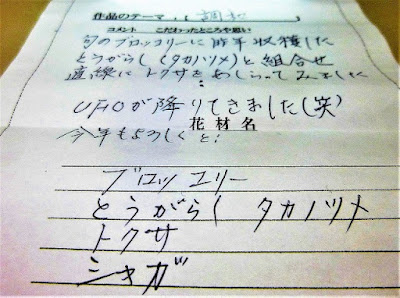 作品のテーマ：（ 調和 ）
コメント こだわったところや思い
旬のブロッコリーに昨年収穫した
とうがらし（タカノツメ）と組合せ
直線にトクサをあしらってみました
UFOが降りてきました（笑）
今年もよろしくと！
花材名
ブロッコリー
とうがらし タカノツメ
トクサ
シャガ